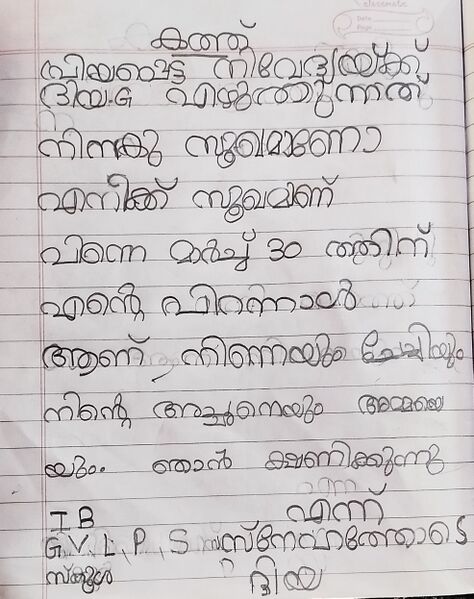 classmate
Date
Page
കത്ത്
പ്രിയപ്പെട്ട നിവേദ്യയ്ക്ക്
ദിയ.G എഴുത്തുന്നത്
നിനകു സുഖമാണോ
എനിക്ക് സുഖമണ്
പിന്നെ മാർച്ച് 30 തതിന്
എൻ്റെ പിറന്നാൾ
ആണ്, നിന്നെയും ചേച്ചിയും
നിൻ്റെ അച്ചനെയും അമ്മയെ
യും. ഞാൻ ക്ഷണിക്കുന്നു
I B എന്ന്
G.V.L.P.S സ്നേഹത്തോടെ
സ്കൂൾ ദിയ